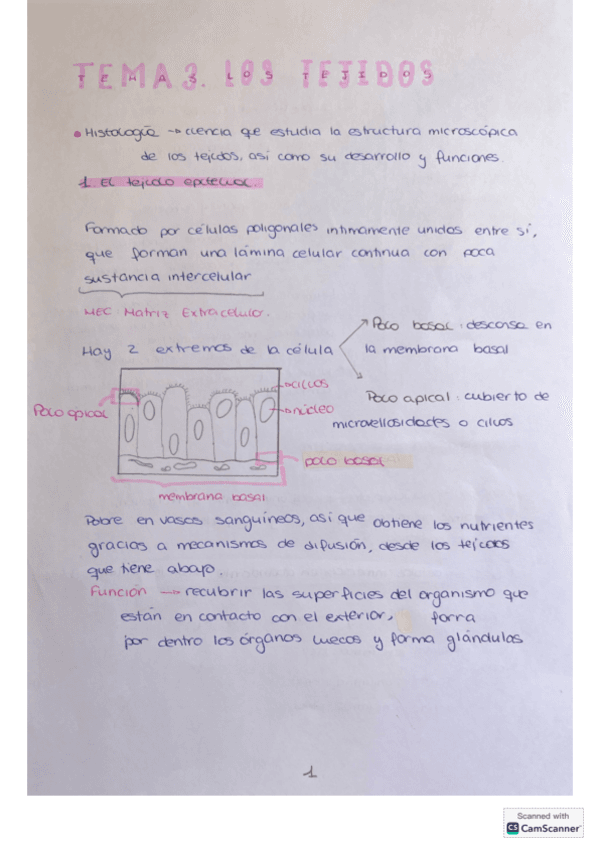 TEMA 3. LOS TEJIDOS
• Histología → ciencia que estudia la estructura microscópica
de los tejidos, así como su desarrollo y funciones.
1. El tejido epitelial.
Formado por células poligonales íntimamente unidas entre sí,
que forman una lámina celular continua con poca
sustancia intercelular
MEC Matriz Extracelular.
Hay 2 extremos de la célula
Polo basal: descansa en
la membrana basal
Polo apical: cubierto de
microvellosidades o cilios
Polo apical
→cilios
→núcleo
polo basal
membrana basal
Pobre en vasos sanguíneos, así que obtiene los nutrientes
gracias a mecanismos de difusión, desde los tejidos
que tiene abajo.
Función → recubrir las superficies del organismo que
están en contacto con el exterior, forra
por dentro los órganos huecos y forma glándulas
1
Scanned with
CS CamScanner